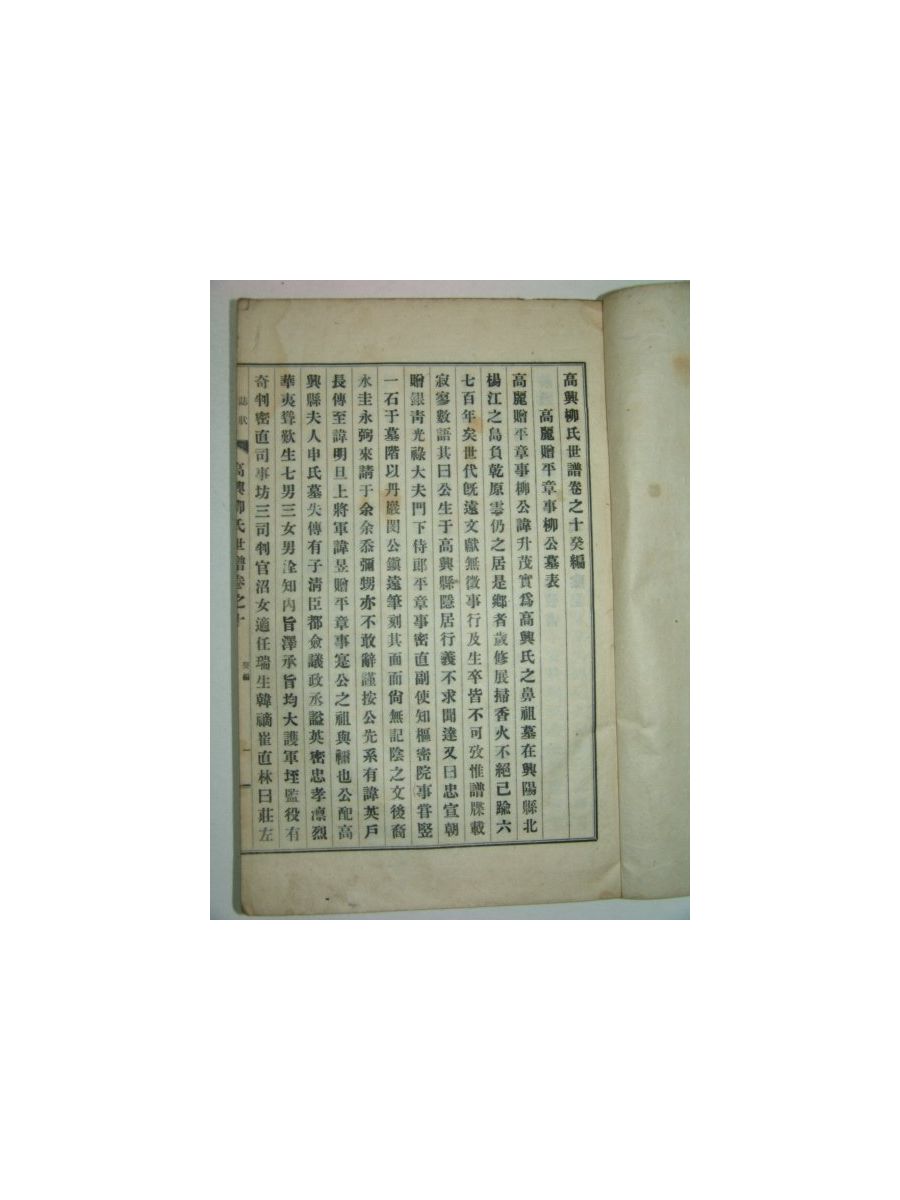 高興柳氏世譜卷之十癸編
高麗贈平章事柳公墓表
高麗贈平章事柳公諱升茂實爲高興氏之鼻祖墓在興陽縣北
楊江之島負乾原雲仍之居是鄕者歲修展掃香火不絕已踰六
七百年矣世代旣遠文獻無徵事行及生卒皆不可攷惟譜牒載
寂寥數語其曰公生于高興縣隱居行義不求聞達又曰忠宣朝
贈銀靑光祿大夫門下侍郞平章事密直副使知樞密院事甞竪
一石于墓階以丹巖閔公鎭遠筆刻其面面尙無記陰之文後裔
永圭永弼來請于余余忝彌甥亦不敢辭謹按公先系有諱英戶
長傳至諱明旦上將軍諱昱贈平章事寔公之祖與禰也公配高
興縣夫人申氏墓失傳有子淸臣都僉議政丞謚英密忠孝凛烈
華夷聳歎生七男三女男詮知內旨澤承旨均大護軍埕監役有
奇判密直司事坊三司判官沼女適任瑞生韓謫崔直林曰莊左
誌狀 高興柳氏世譜卷之十 癸編 一